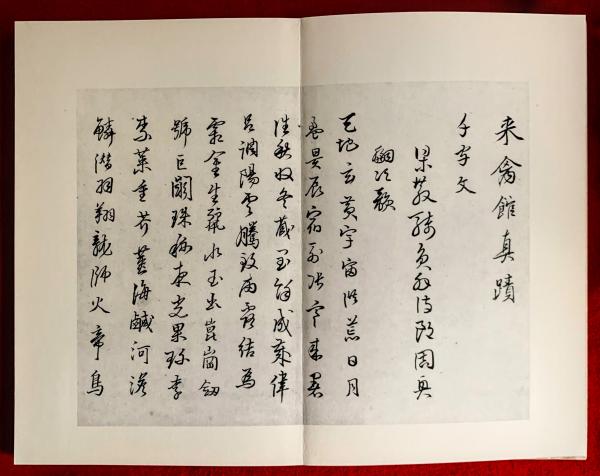 来禽館真蹟
千字文
梁散騎員外侍郎周興
嗣次韻
天地玄黃宇宙洪荒日月
盈昃辰宿列張寒來暑
往秋收冬藏閏餘成歲律
呂調陽雲騰致雨露結為
霜金生麗水玉出崑崗劍
號巨闕珠稱夜光果珍李
柰菜重芥薑海鹹河淡
鱗潛羽翔龍師火帝鳥